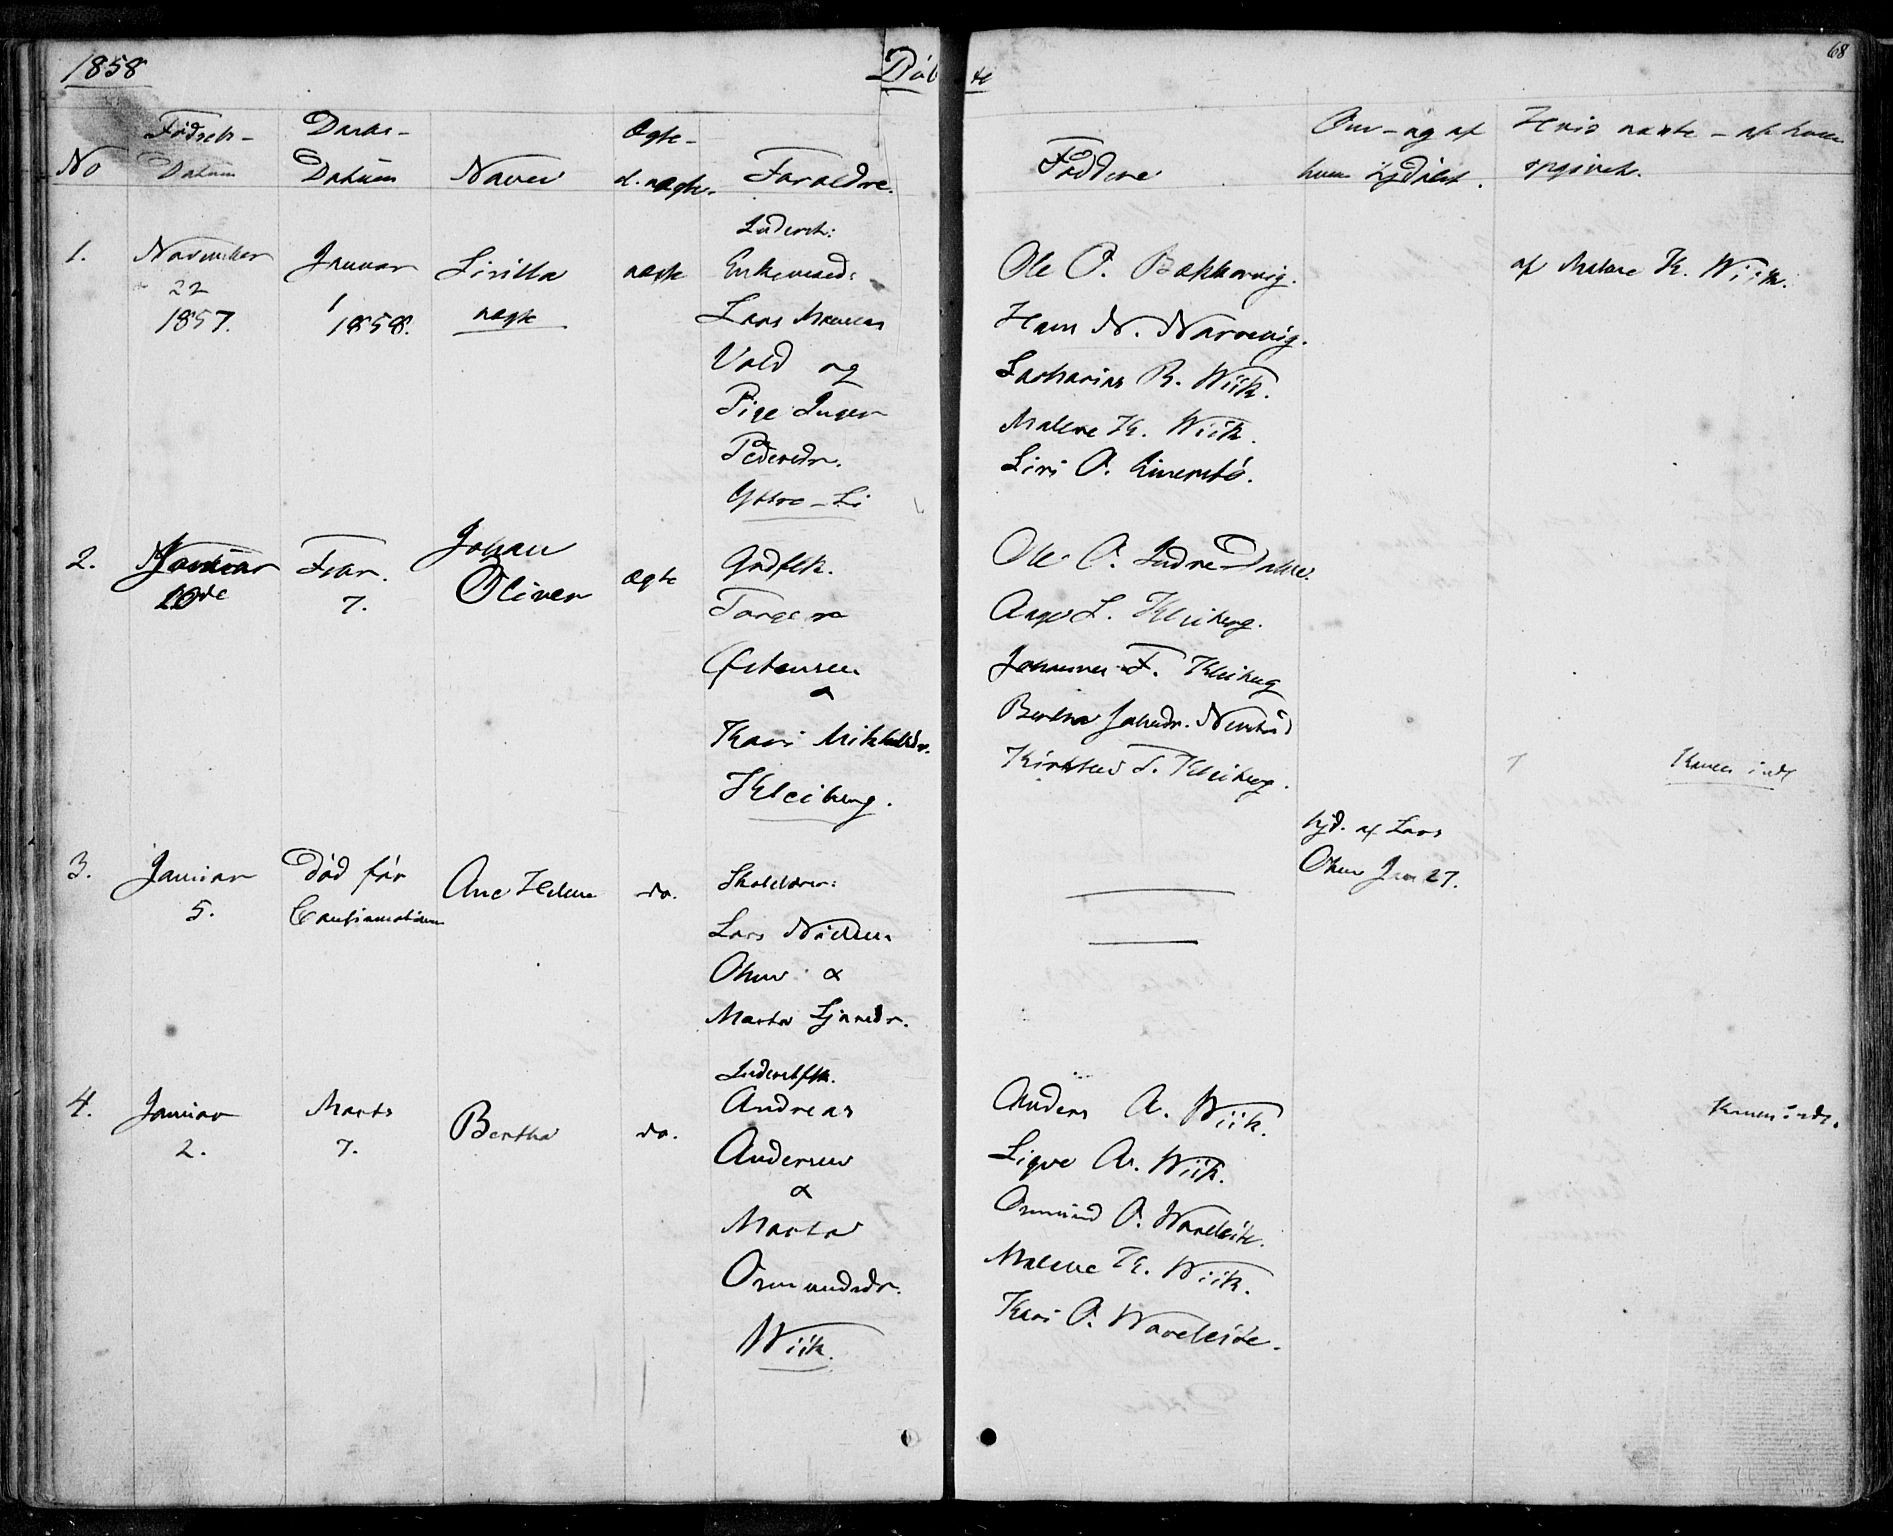 1858
Døb te
68
No
Fødsels-
Datum
Daabs-
Datum
Navn
Ægte-
el. uægte.
Forældre.
Faddere
Om - og af
hvem hjdøbt.
Hvis uægte - af hvem
opgivet.
1.
November
22
1857.
Januar
1
1858.
Sirilla
uægte
uægte
Inderst:
Enkemand:
Lars
Vold og
Pige Inger
Pedersdr.
Yttre-Li
Ole O. Bakkevig.
Hans N. Narrevig.
Zacharias R. Wiik.
Malene K. Wiik.
Siri O.
af Malene K. Wiik.
2.
Januar
10de
Febr.
7.
Johan
Oliver
ægte
Grdflk.
Torger
Østensen
&
Kari Mikkelsdr.
Kleiberg.
Ole O. Indre-Dahle.
Aage L. Kleiberg.
Johannes F. Kleiberg
Bertha Johsdr.
Kirsten T. Kleiberg.
Konen indl
3.
Januar
5.
Død før
Confirmationen
Ane Helene
do.
Skolelærer:
Lars Nielsen
Ohm &
Marta Sjursdr.
hjd. af Lars
Ohm Jan 27.
4.
Januar
2.
Marts
7.
Bertha
do.
Inderstflk.
Andreas
Andersen
&
Marta
Ormundsdr.
Wiik.
Anders A. Wiik.
Signe A. Wiik.
Ormund O. Waaleite.
Malene K. Wiik.
Kari O. Waaleite.
Konen indl.